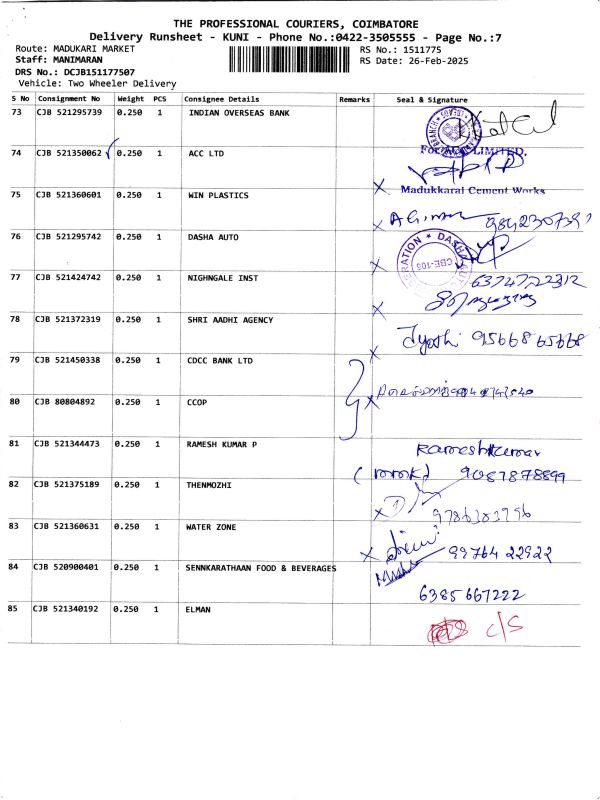 THE PROFESSIONAL COURIERS, COIMBATORE
Delivery Runsheet - KUNI - Phone No.:0422-3505555 - Page No.:7
Route: MADUKARI MARKET RS No.: 1511775
Staff: MANIMARAN RS Date: 26-Feb-2025
DRS No.: DCJB151177507
Vehicle: Two Wheeler Delivery
S No Consignment No Weight PCS Consignee Details Remarks Seal & Signature
73 CJB 521295739 0.250 1 INDIAN OVERSEAS BANK
BRANCH
74 CJB 521350062 0.250 1 ACC LTD For ACC LIMITED.
Madukkarai Cement Works
75 CJB 521360601 0.250 1 WIN PLASTICS
76 CJB 521295742 0.250 1 DASHA AUTO
DASHA
CBE-105
77 CJB 521424742 0.250 1 NIGHNGALE INST
6374722312
78 CJB 521372319 0.250 1 SHRI AADHI AGENCY
Jyothi 9566865668
79 CJB 521450338 0.250 1 CDCC BANK LTD
80 CJB 80804892 0.250 1 CCOP
81 CJB 521344473 0.250 1 RAMESH KUMAR P Rameshkumar
9087878899
82 CJB 521375189 0.250 1 THENMOZHI
83 CJB 521360631 0.250 1 WATER ZONE
99764 22922
84 CJB 520900401 0.250 1 SENNKARATHAAN FOOD & BEVERAGES
6385667222
85 CJB 521340192 0.250 1 ELMAN
c/s